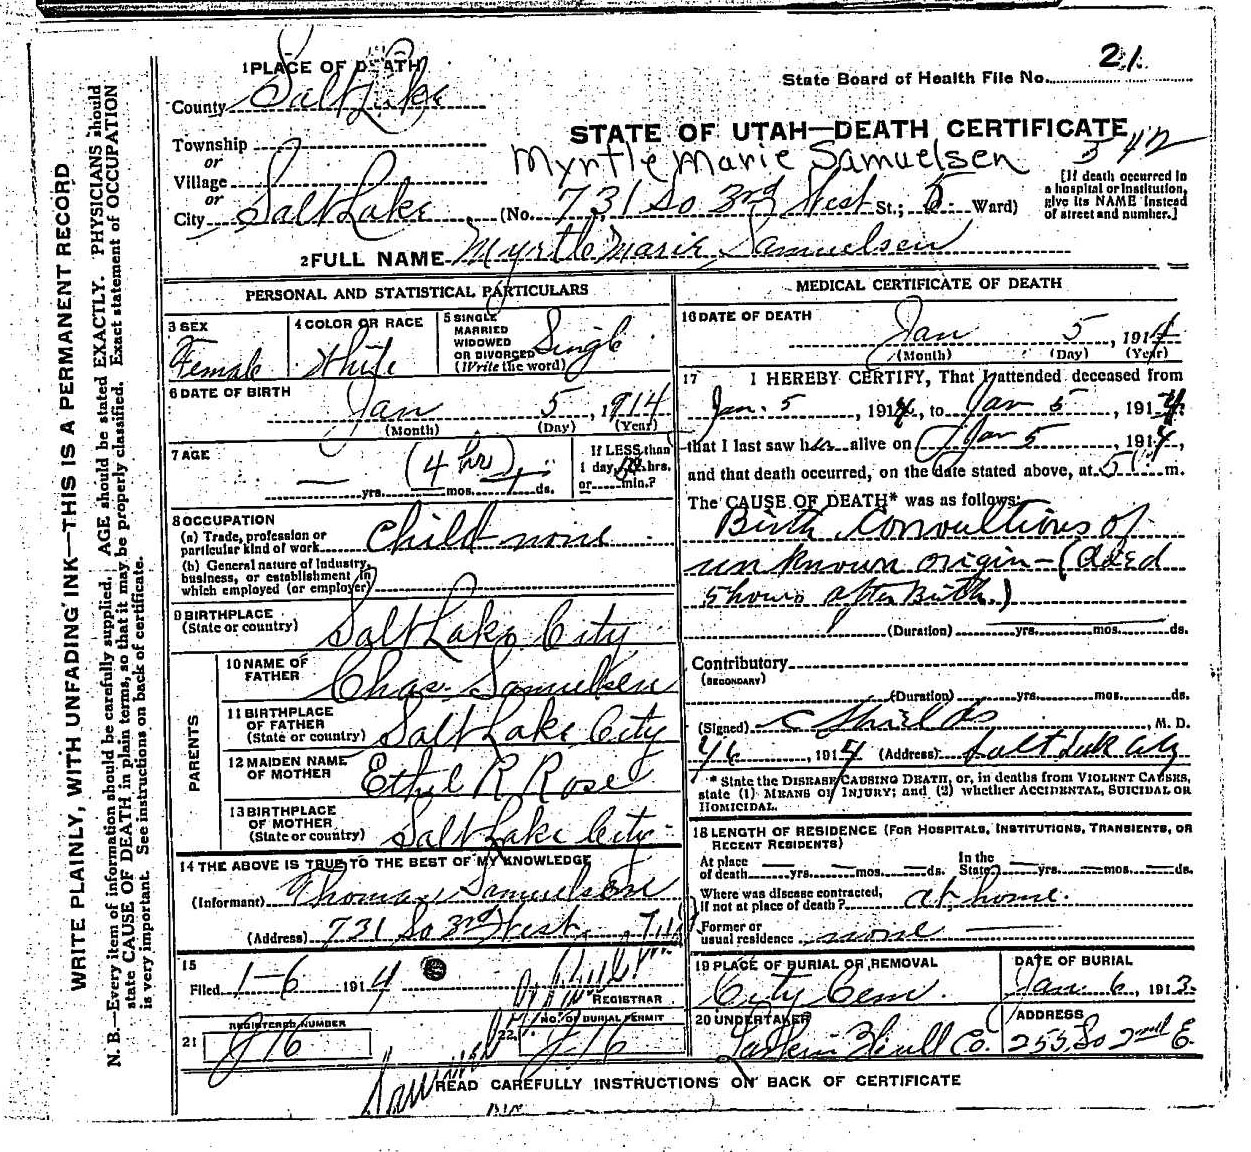 21.
State Board of Health File No.
1 PLACE OF DEATH
County Salt Lake
STATE OF UTAH—DEATH CERTIFICATE
Township
or
Myrtle Marie Samuelsen 342
Village
or
City Salt Lake (No. 731 So 3rd West St.; 5. Ward)
[If death occurred in
a hospital or institution,
give its NAME instead
of street and number.]
2 FULL NAME Myrtle Marie Samuelsen
PERSONAL AND STATISTICAL PARTICULARS
3 SEX
Female
4 COLOR OR RACE
White
5 SINGLE
MARRIED
WIDOWED
OR DIVORCED
(Write the word)
Single
6 DATE OF BIRTH
Jan 5, 1914
(Month) (Day) (Year)
7 AGE
(4 hrs)
yrs. mos. ds.
If LESS than
1 day, hrs.
or min.?
8 OCCUPATION
(a) Trade, profession or
particular kind of work child none
(b) General nature of Industry,
business, or establishment in
which employed (or employer)
9 BIRTHPLACE
(State or country) Salt Lake City
PARENTS
10 NAME OF
FATHER Chas. Samuelsen
11 BIRTHPLACE
OF FATHER
(State or country) Salt Lake City
12 MAIDEN NAME
OF MOTHER Ethel R Rose
13 BIRTHPLACE
OF MOTHER
(State or country) Salt Lake City
14 THE ABOVE IS TRUE TO THE BEST OF MY KNOWLEDGE
(Informant) Thomas Samuelsen
(Address) 731 So 3rd West.
15
Filed 1-6 1914
REGISTRAR
REGISTERED NUMBER
21 J 16
NO. OF BURIAL PERMIT
22. J-16
MEDICAL CERTIFICATE OF DEATH
16 DATE OF DEATH
Jan 5, 1914
(Month) (Day) (Year)
17 I HEREBY CERTIFY, That I attended deceased from
Jan. 5, 1914, to Jan 5, 1914.
that I last saw her alive on Jan 5, 1914,
and that death occurred, on the date stated above, at 5 m.
The CAUSE OF DEATH* was as follows:
Birth convultions of
unknown origin-(died
5 hours after Birth.)
(Duration) yrs. mos. ds.
Contributory
(SECONDARY)
(Duration) yrs. mos. ds.
(Signed) C Shields, M. D.
1/6, 1914 (Address) Salt Lake City
* State the DISEASE CAUSING DEATH, or, in deaths from VIOLENT CAUSES,
state (1) MEANS OF INJURY; and (2) whether ACCIDENTAL, SUICIDAL OR
HOMICIDAL.
18 LENGTH OF RESIDENCE (FOR HOSPITALS, INSTITUTIONS, TRANSIENTS, OR
RECENT RESIDENTS)
At place
of death yrs. mos. ds.
In the
State yrs. mos. ds.
Where was disease contracted,
if not at place of death? at home.
Former or
usual residence none
19 PLACE OF BURIAL OR REMOVAL
City Cem.
DATE OF BURIAL
Jan. 6, 1913.
20 UNDERTAKER
Co.
ADDRESS
255 So 2nd E.
READ CAREFULLY INSTRUCTIONS ON BACK OF CERTIFICATE
WRITE PLAINLY, WITH UNFADING INK—THIS IS A PERMANENT RECORD
N. B.—Every item of information should be carefully supplied. AGE should be stated EXACTLY. PHYSICIANS should
state CAUSE OF DEATH in plain terms, so that it may be properly classified. Exact statement of OCCUPATION
is very important. See instructions on back of certificate.